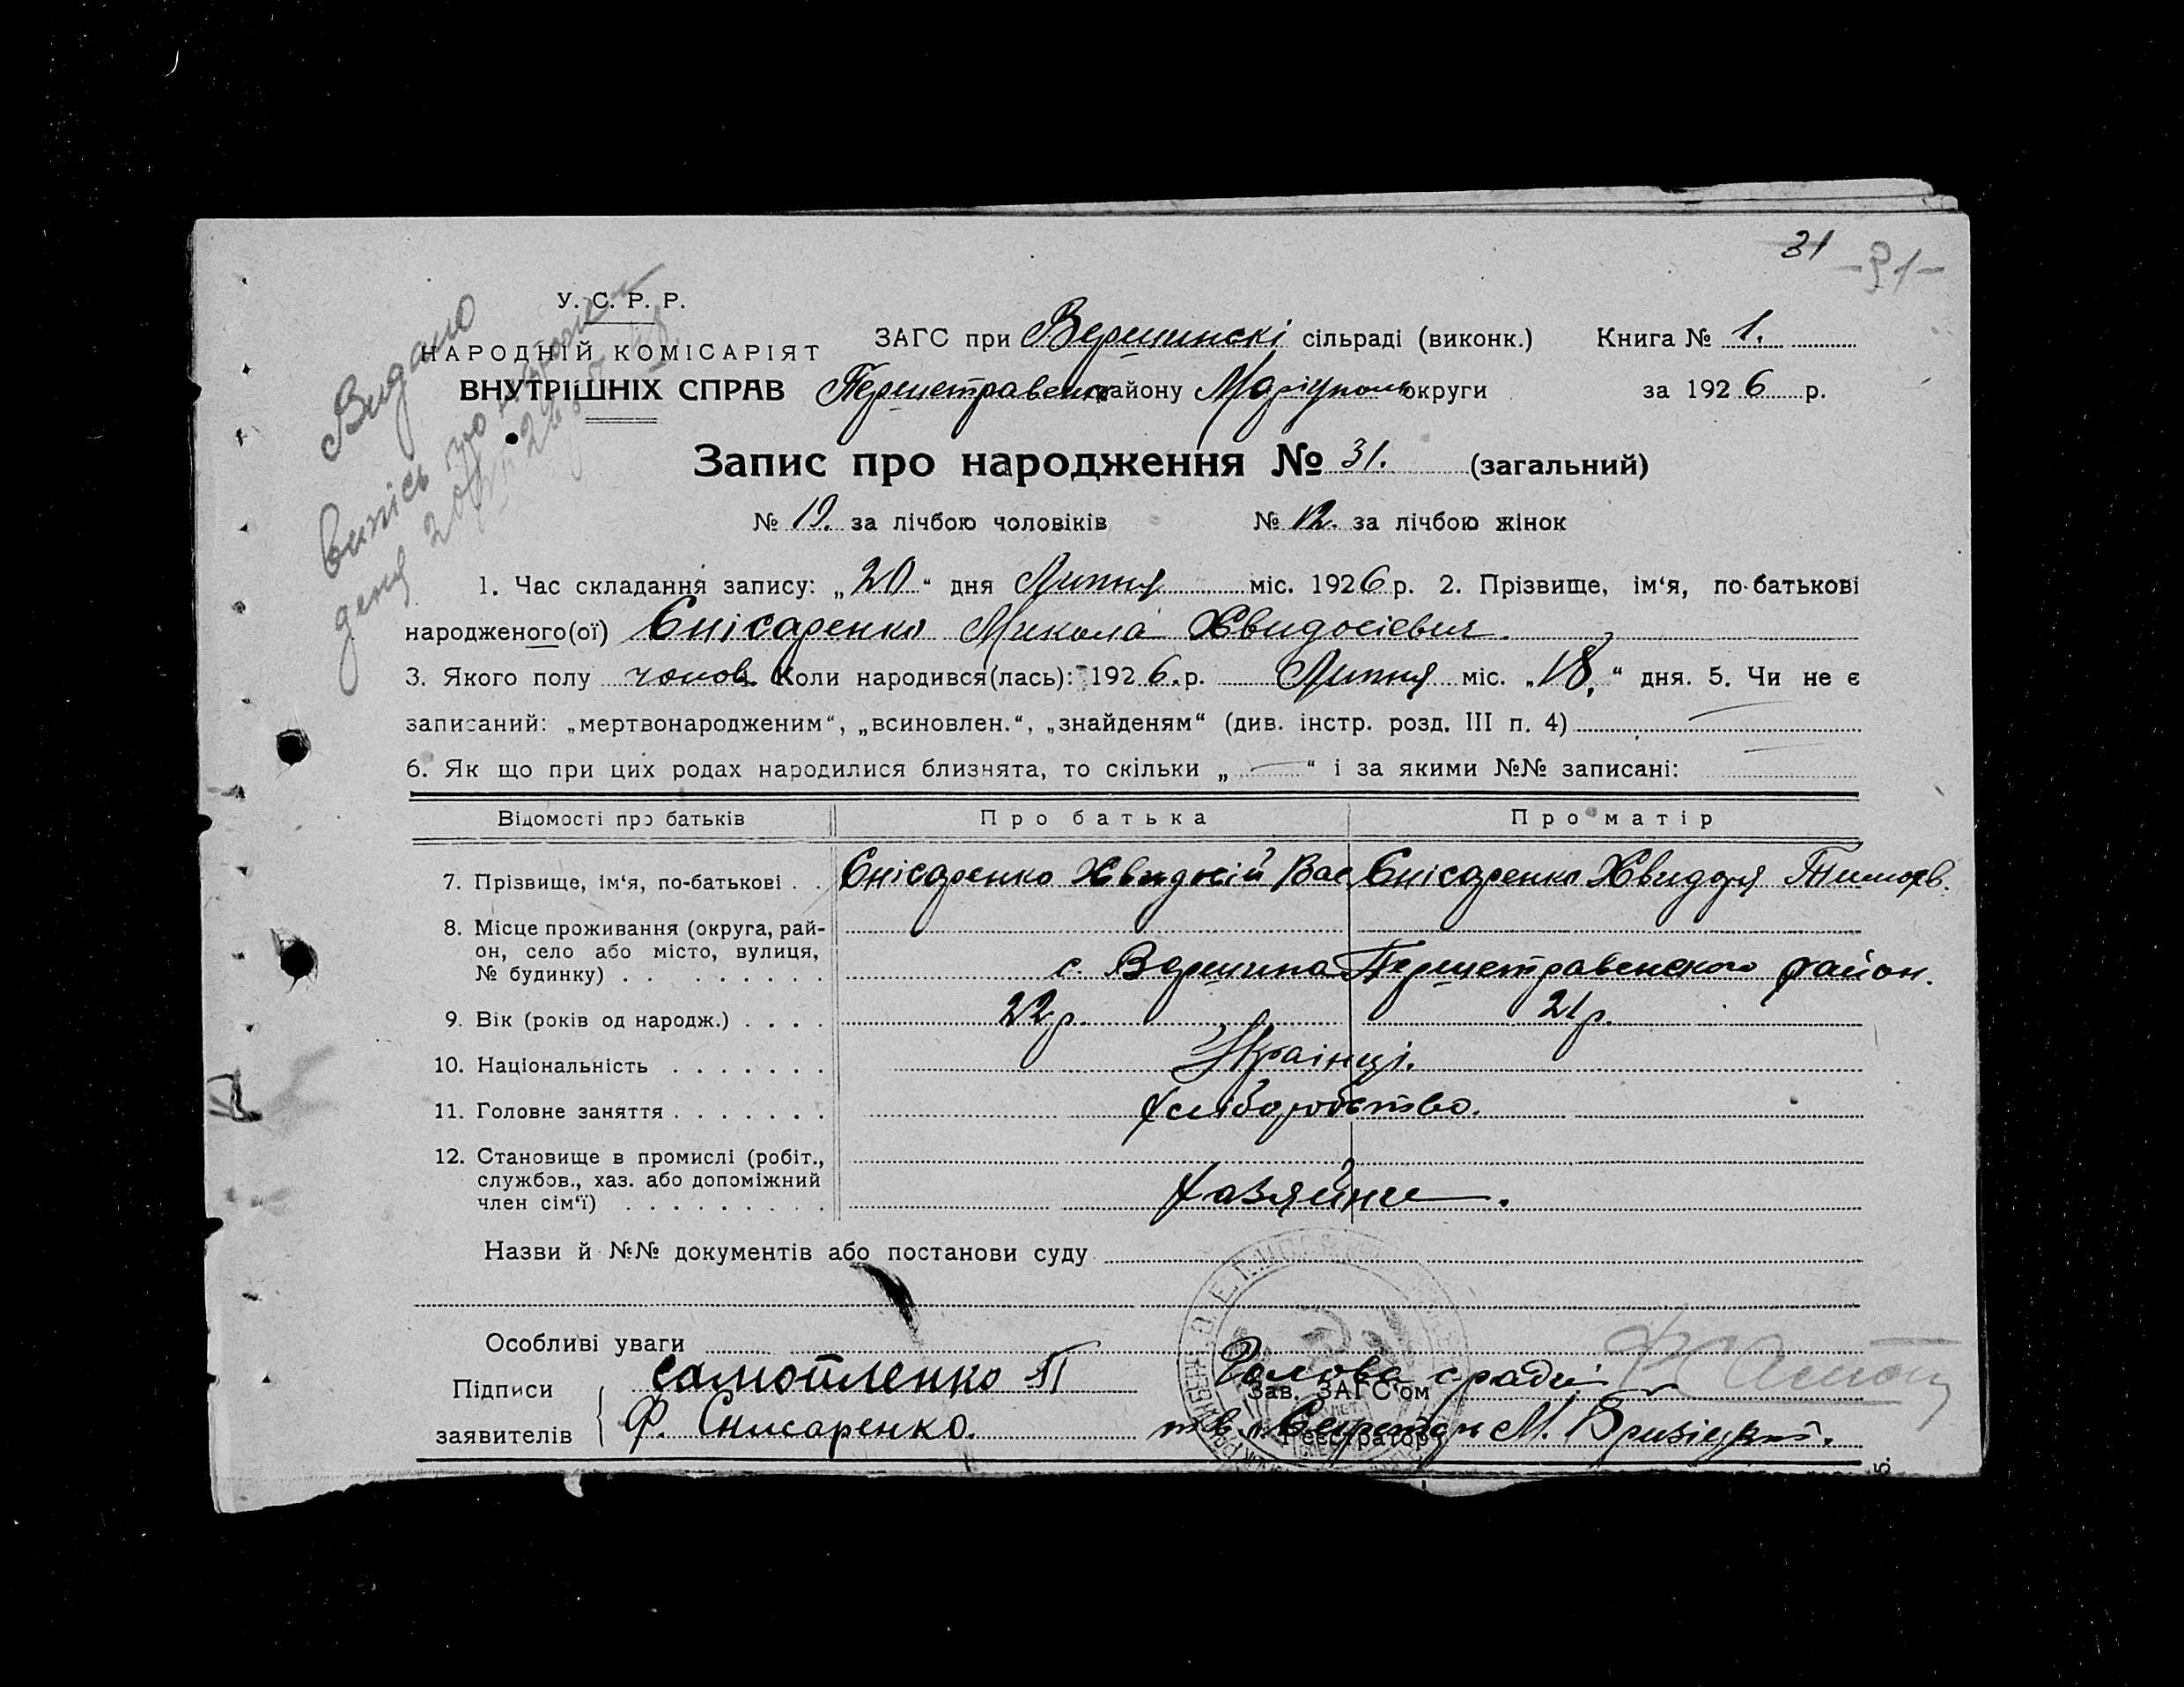 31 -31-
У. С. Р. Р.
НАРОДНІЙ КОМІСАРІЯТ
ВНУТРІШНІХ СПРАВ
Видано
випісь про народж
ЗАГС при Вершинскі сільраді (виконк.) Книга № 1.
Першетравенск району Маріуполь округи за 1926 р.
Запис про народження № 31. (загальний)
№ 19. за лічбою чоловіків № 12. за лічбою жінок
1. Час складання запису: „20“ дня Липня міс. 1926 р. 2. Прізвище, ім‘я, по-батькові
народженого(ої) Снісаренко Микола Хвидосієвич.
3. Якого полу чолов. Коли народився(лась): 1926. р. Липня міс. „18.“ дня. 5. Чи не є
записаний: „мертвонародженим“, „всиновлен.“, „знайденям“ (див. інстр. розд. III п. 4)
6. Як що при цих родах народилися близнята, то скільки „—“ і за якими №№ записані:
Відомості про батьків Про батька Про матір
7. Прізвище, ім‘я, по-батькові . . Снісаренко Хвидосій Вас Снісаренко Хвидоря Тимофв.
8. Місце проживання (округа, рай-
он, село або місто, вулиця,
№ будинку) . . . . . . . . . с. Вершина Першетравенского район.
9. Вік (років од народж.) . . . . 22 р. 21 р.
10. Національність . . . . . . . Украінці.
11. Головне заняття . . . . . . . Хліборобство.
12. Становище в промислі (робіт.,
службов., хаз. або допоміжний
член сім‘ї) . . . . . . . . . Хазяйнє.
Назви й №№ документів або постанови суду
Особливі уваги
Підписи Самойленко П Голова с ради
Зав. ЗАГС‘ом
заявителів Ф. Снисаренко. тв. Секретарь М.
Реєстратор